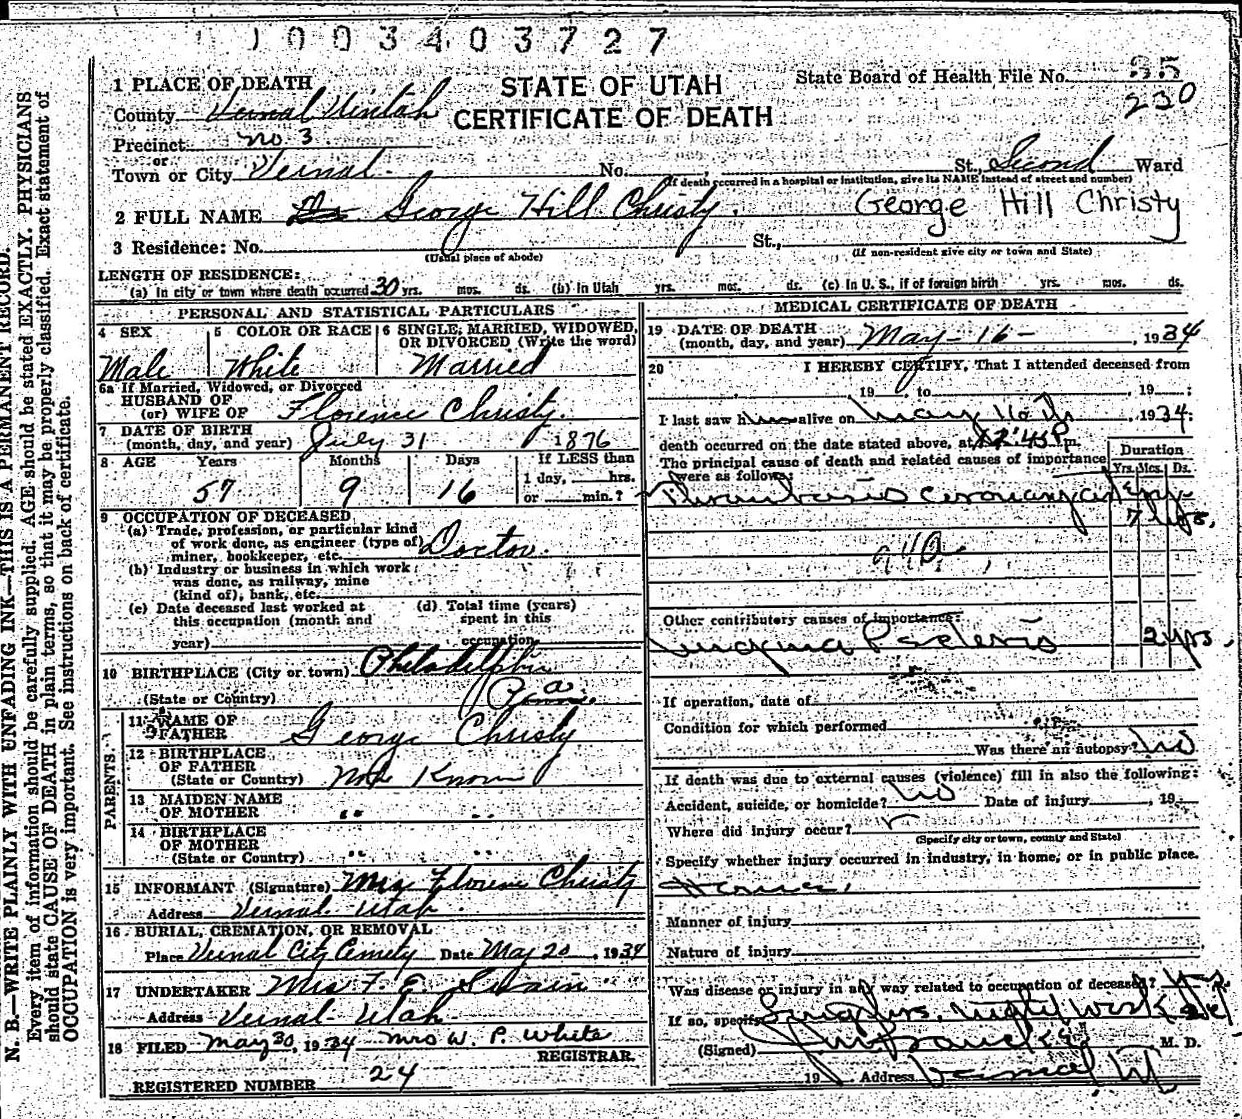 1003403727
1 PLACE OF DEATH
STATE OF UTAH
CERTIFICATE OF DEATH
State Board of Health File No. 35
230
County Vernal Uintah
Precinct no 3
or
Town or City Vernal. No. St., Second Ward
(If death occurred in a hospital or institution, give its NAME instead of street and number)
2 FULL NAME Dr George Hill Christy. George Hill Christy
3 Residence: No. St.,
(Usual place of abode) (If non-resident give city or town and State)
LENGTH OF RESIDENCE:
(a) In city or town where death occurred 30 yrs. mos. ds. (b) In Utah yrs. mos. ds. (c) In U. S., if of foreign birth yrs. mos. ds.
PERSONAL AND STATISTICAL PARTICULARS
4 SEX 5 COLOR OR RACE 6 SINGLE, MARRIED, WIDOWED, OR DIVORCED (Write the word)
Male White Married
6a If Married, Widowed, or Divorced
HUSBAND OF
(or) WIFE OF Florence Christy.
7 DATE OF BIRTH
(month, day, and year) July 31 1876
8 AGE Years Months Days If LESS than
57 9 16 1 day, hrs.
or min.?
9 OCCUPATION OF DECEASED
(a) Trade, profession, or particular kind
of work done, as engineer (type of)
miner, bookkeeper, etc. Doctor.
(b) Industry or business in which work
was done, as railway, mine
(kind of), bank, etc.
(c) Date deceased last worked at
this occupation (month and
year)
(d) Total time (years)
spent in this
occupation
10 BIRTHPLACE (City or town) Philadelphia
(State or Country) Penn. a
PARENTS
11 NAME OF
FATHER George Christy
12 BIRTHPLACE
OF FATHER
(State or Country) Not Known
13 MAIDEN NAME
OF MOTHER " "
14 BIRTHPLACE
OF MOTHER
(State or Country) " "
15 INFORMANT (Signature) Mrs Florence Christy
Address Vernal Utah
16 BURIAL, CREMATION, OR REMOVAL
Place Vernal City Cemety Date May 20, 1934
17 UNDERTAKER Mrs F. E. Swain
Address Vernal Utah
18 FILED May 30, 1934 Mrs W. P. White
REGISTRAR.
REGISTERED NUMBER 24
MEDICAL CERTIFICATE OF DEATH
19 DATE OF DEATH
(month, day, and year) May - 16 - , 1934
20 I HEREBY CERTIFY, That I attended deceased from
, 19 , to , 19 ;
I last saw him alive on May 16 th, 1934;
death occurred on the date stated above, at 12:45 P m.
The principal cause of death and related causes of importance
were as follows:
Duration
Yrs. Mos. Ds.
Thrombosis coronary artery-
7 hrs.
94B
Other contributory causes of importance:
Angina Pectoris 2 yrs.
If operation, date of
Condition for which performed
Was there an autopsy? No
If death was due to external causes (violence) fill in also the following:
Accident, suicide, or homicide? No Date of injury , 19
Where did injury occur?
(Specify city or town, county and State)
Specify whether injury occurred in industry, in home, or in public place.
Home.
Manner of injury
Nature of injury
Was disease or injury in any way related to occupation of deceased? Yes
If so, specify Long hrs. nightwork
(Signed) M. D.
19 Address Vernal, Ut
N. B.—WRITE PLAINLY WITH UNFADING INK—THIS IS A PERMANENT RECORD.
Every item of information should be carefully supplied. AGE should be stated EXACTLY. PHYSICIANS
should state CAUSE OF DEATH in plain terms, so that it may be properly classified. Exact statement of
OCCUPATION is very important. See instructions on back of certificate.